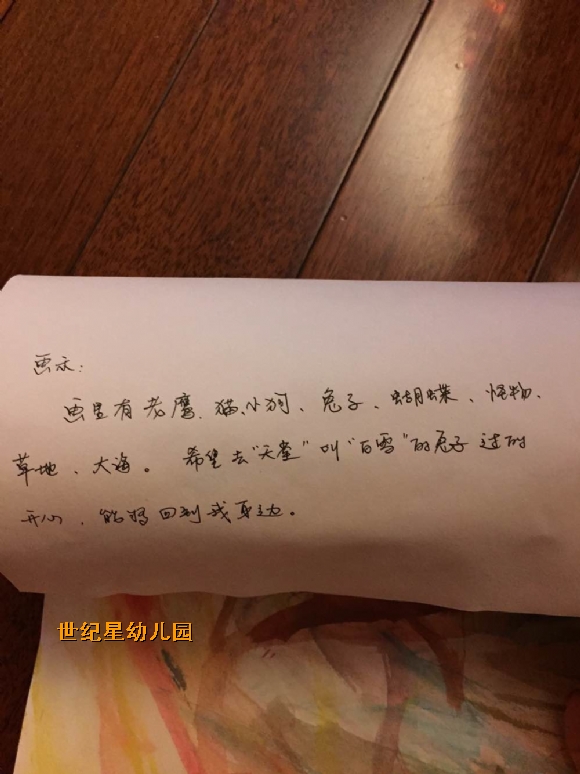 画意:
画里有老鹰、猫、小狗、兔子、蝴蝶、怪物、
草地、大海。希望去“天堂”叫“白雪”的兔子过的
开心,能够回到我身边。
世纪星幼儿园